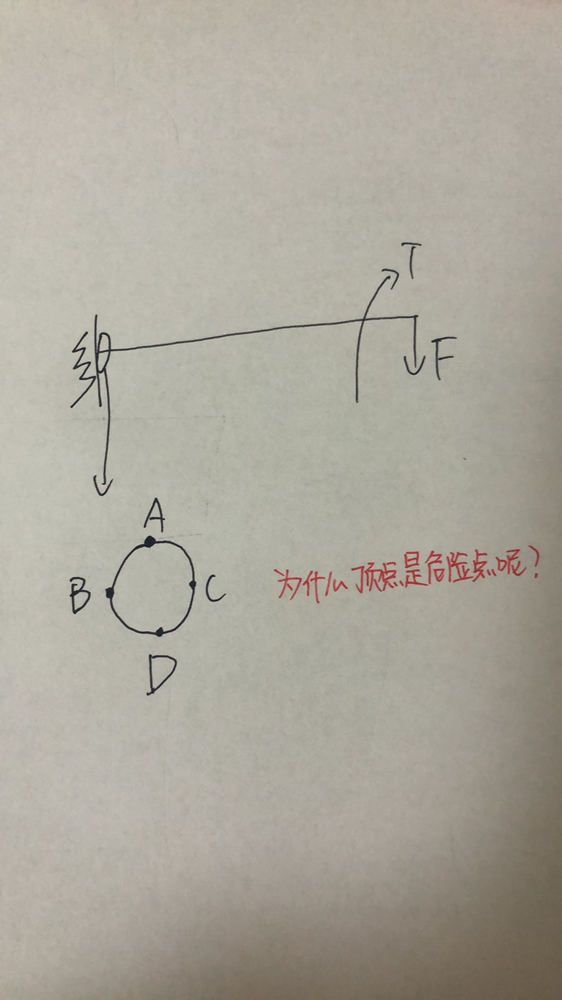 T
F
A
B
C
为什么顶点是危险点呢?
D